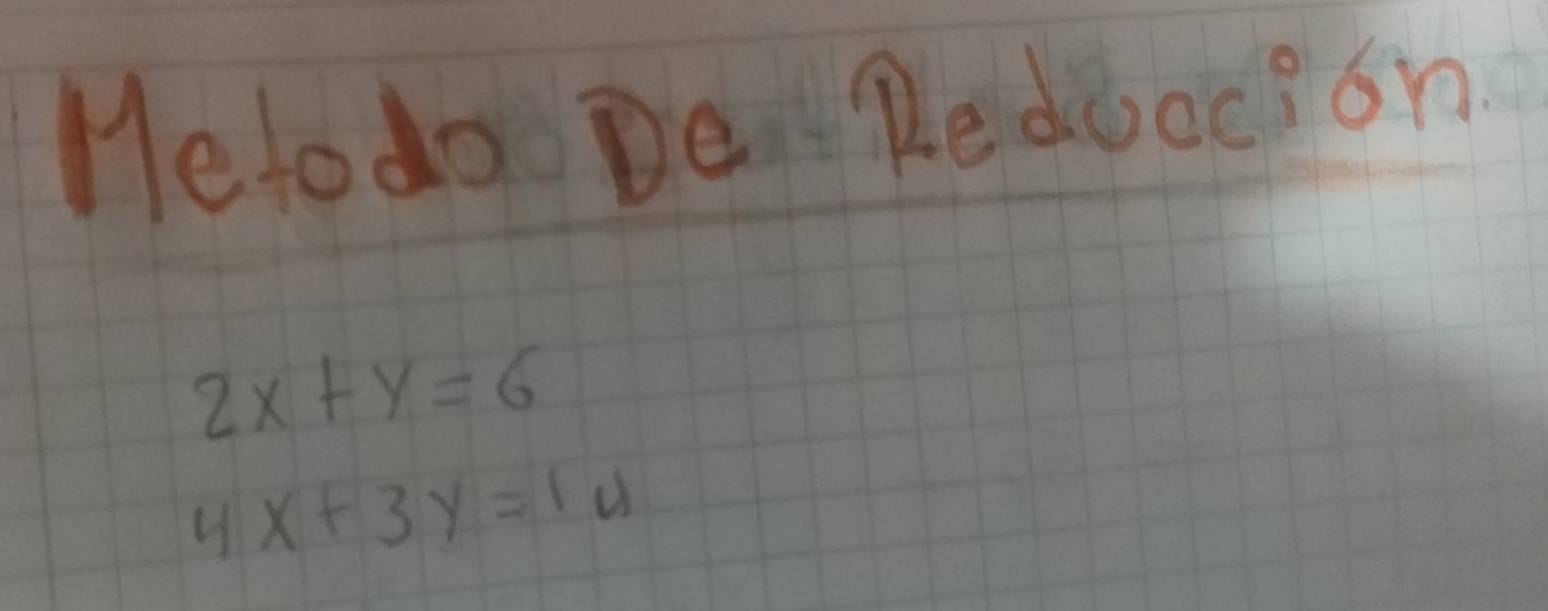 Metodo De Reducción.
2x+y=6
4x+3y=14